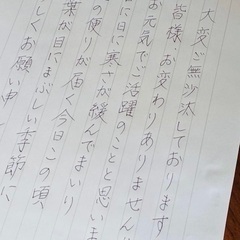 大変ご無沙汰しております
皆様、お変わりありません
お元気でご活躍のことと思いま
日に日に寒さが緩んでまいり
の便りが届く今日この頃
葉が目にまぶしい季節に
しくお願い申し